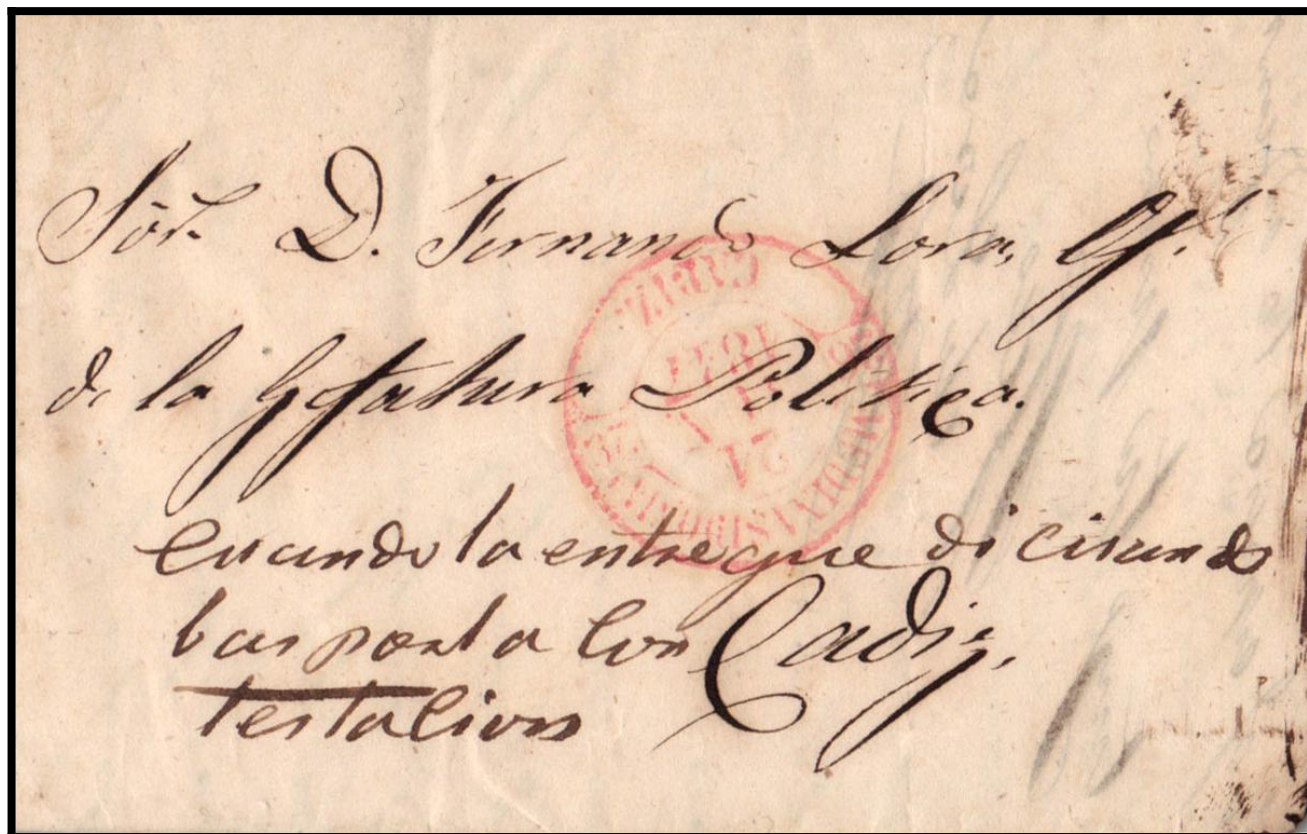 Sór. D. Fernando Lora, Of.l
de la Gefatura Politica.
cuando la entregue di cuando
bas por la Con
testacion
Cadiz.
MEDINASIDONIA
24